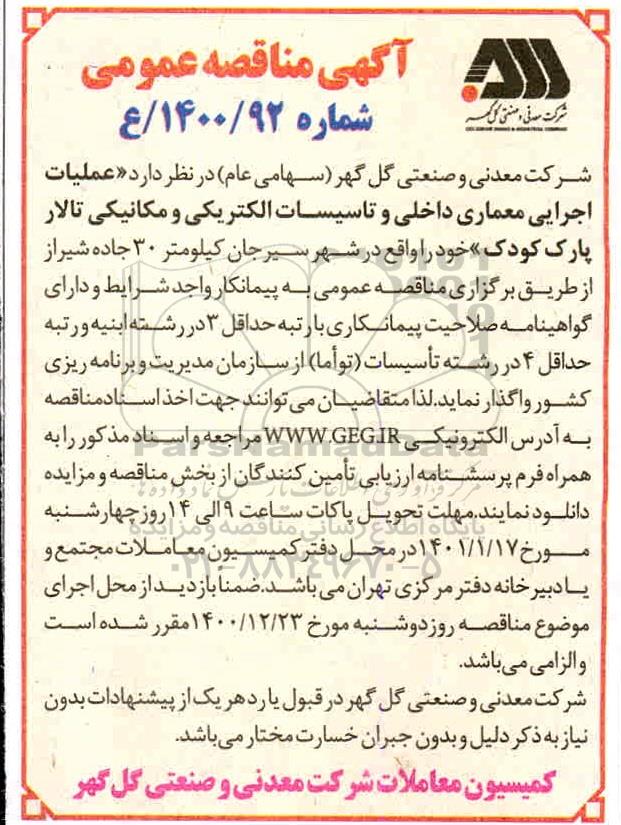 آگهی مناقصه عمومی
شماره ۱۴۰۰/۹۲/ع
شرکت معدنی و صنعتی گل گهر
GOL GOHAR MINING & INDUSTRIAL COMPANY
شرکت معدنی و صنعتی گل گهر (سهامی عام) در نظر دارد «عملیات
اجرایی معماری داخلی و تاسیسات الکتریکی و مکانیکی تالار
پارک کودک» خود را واقع در شهر سیرجان کیلومتر ۳۰ جاده شیراز
از طریق برگزاری مناقصه عمومی به پیمانکار واجد شرایط و دارای
گواهینامه صلاحیت پیمانکاری با رتبه حداقل ۳ در رشته ابنیه و رتبه
حداقل ۴ در رشته تأسیسات (توأما) از سازمان مدیریت و برنامه ریزی
کشور واگذار نماید. لذا متقاضیان می توانند جهت اخذ اسناد مناقصه
به آدرس الکترونیکی WWW.GEG.IR مراجعه و اسناد مذکور را به
همراه فرم پرسشنامه ارزیابی تأمین کنندگان از بخش مناقصه و مزایده
دانلود نمایند. مهلت تحویل پاکات ساعت ۹ الی ۱۴ روز چهارشنبه
مورخ ۱۴۰۱/۱/۱۷ در محل دفتر کمیسیون معاملات مجتمع و
یا دبیرخانه دفتر مرکزی تهران می باشد. ضمناً بازدید از محل اجرای
موضوع مناقصه روز دوشنبه مورخ ۱۴۰۰/۱۲/۲۳ مقرر شده است
و الزامی می باشد.
شرکت معدنی و صنعتی گل گهر در قبول یا رد هر یک از پیشنهادات بدون
نیاز به ذکر دلیل و بدون جبران خسارت مختار می باشد.
کمیسیون معاملات شرکت معدنی و صنعتی گل گهر
ParsNamadData
پایگاه اطلاع رسانی مناقصه و مزایده
۰۲۱-۸۸۳۴۹۶۷۰-۵